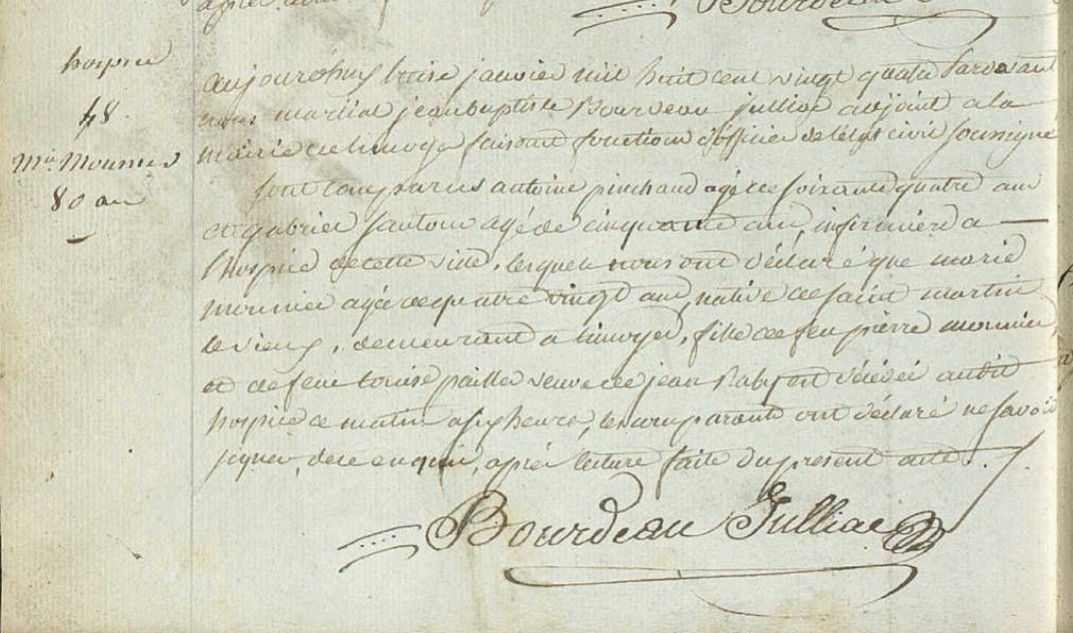 après
Bourdeau
hospice
48
Mie Mounier
80 an
aujourdhuy treise janvier mil huit cent vingt quatre Pardevant
nous martial jean baptiste Bourdeau julliac adjoint a la
mairie de limoges faisant fonction d'officier de letat civil soussigné
sont comparus antoine pinchaud agé de soixante quatre ans
et gabriel fautour agé de cinquante ans, infirmiers a
lhospice de cette ville, lesquels nous ont déclaré que marie
mounier agée de quatre vingt ans, native de saint martin
le vieux, demeurant a limoges, fille de feu pierre mounier,
et de feue louise pailler veuve de jean Raby est décédée audit
hospice ce matin a six heures, les comparants ont déclaré ne savoir
signer, de ce enquis, après lecture faite du present acte.
Bourdeau Julliac